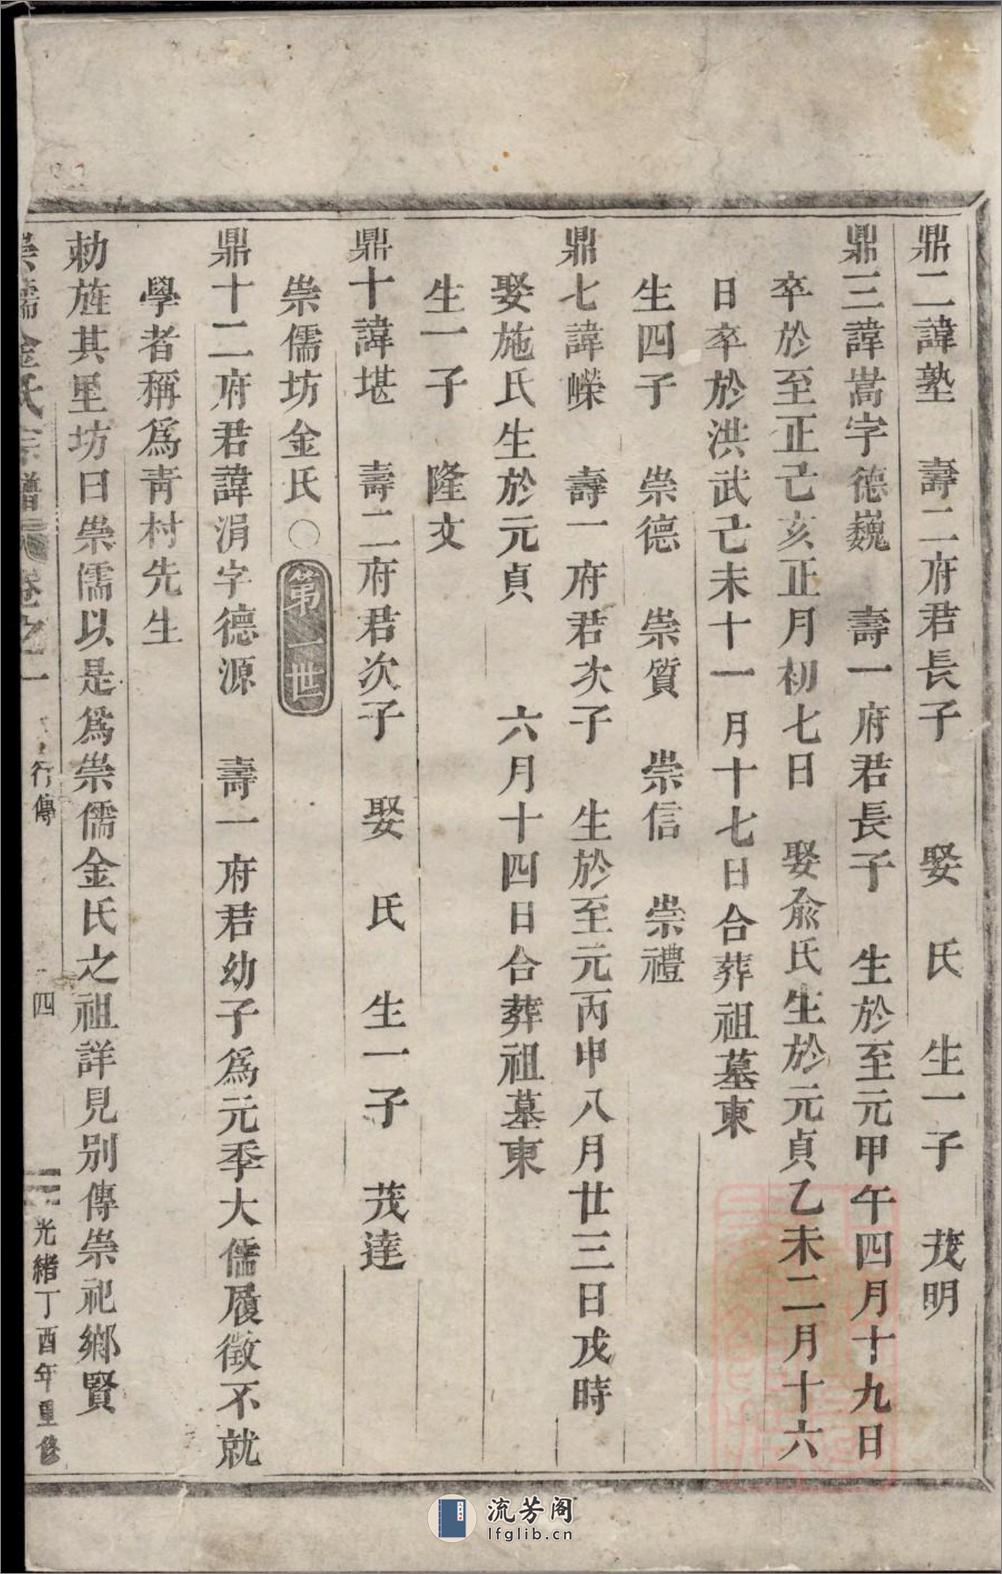 鼎二諱塾　壽二府君長子　娶　氏　生一子　茂明
鼎三諱嵩字德巍　壽一府君長子　生於至元甲午四月十九日
卒於至正己亥正月初七日　娶兪氏生於元貞乙未二月十六
日卒於洪武己未十一月十七日合葬祖墓東
生四子　崇德　崇質　崇信　崇禮
鼎七諱嶸　壽一府君次子　生於至元丙申八月廿三日戌時
娶施氏生於元貞　六月十四日合葬祖墓東
生一子　隆文
鼎十諱堪　壽二府君次子　娶　氏　生一子　茂達
崇儒坊金氏○第一世
鼎十二府君諱涓字德源　壽一府君幼子爲元季大儒屨徵不就
學者稱爲青村先生
勅旌其里坊曰崇儒以是爲崇儒金氏之祖詳見別傳崇祀鄉賢
崇儒金氏宗譜　卷之一　行傳　四　光緒丁酉年重修
流芳阁
lfglib.cn